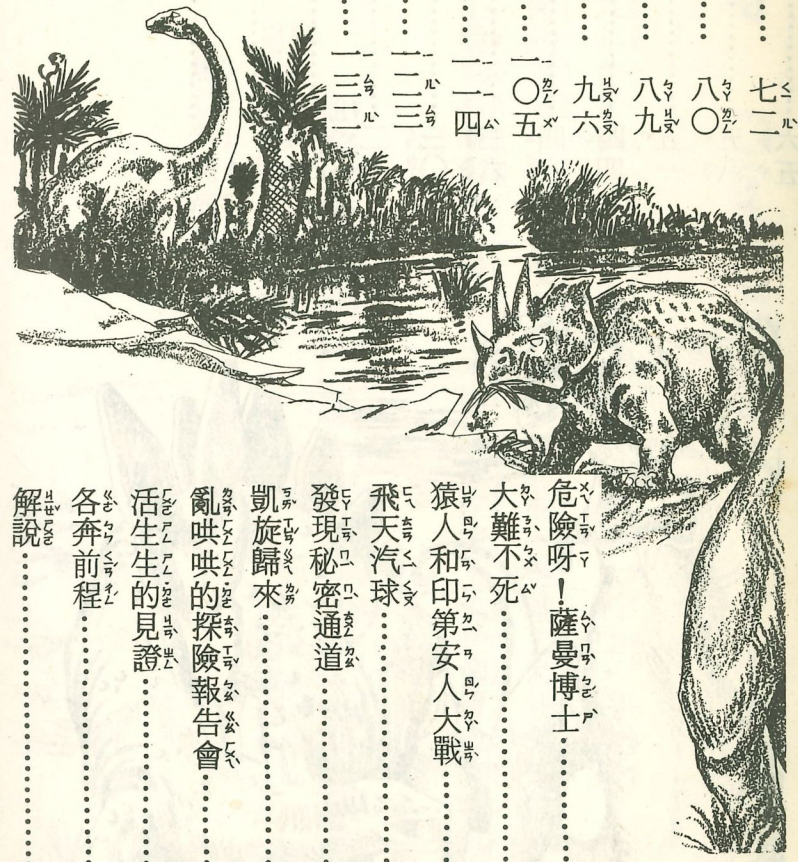 ……七二
……八〇
……八九
……九六
……一〇五
……一一四
……一二三
……一三二
危險呀！薩曼博士……
大難不死……
猿人和印第安人大戰……
飛天汽球……
發現秘密通道……
凱旋歸來……
亂哄哄的探險報告會……
活生生的見證……
各奔前程……
解說……